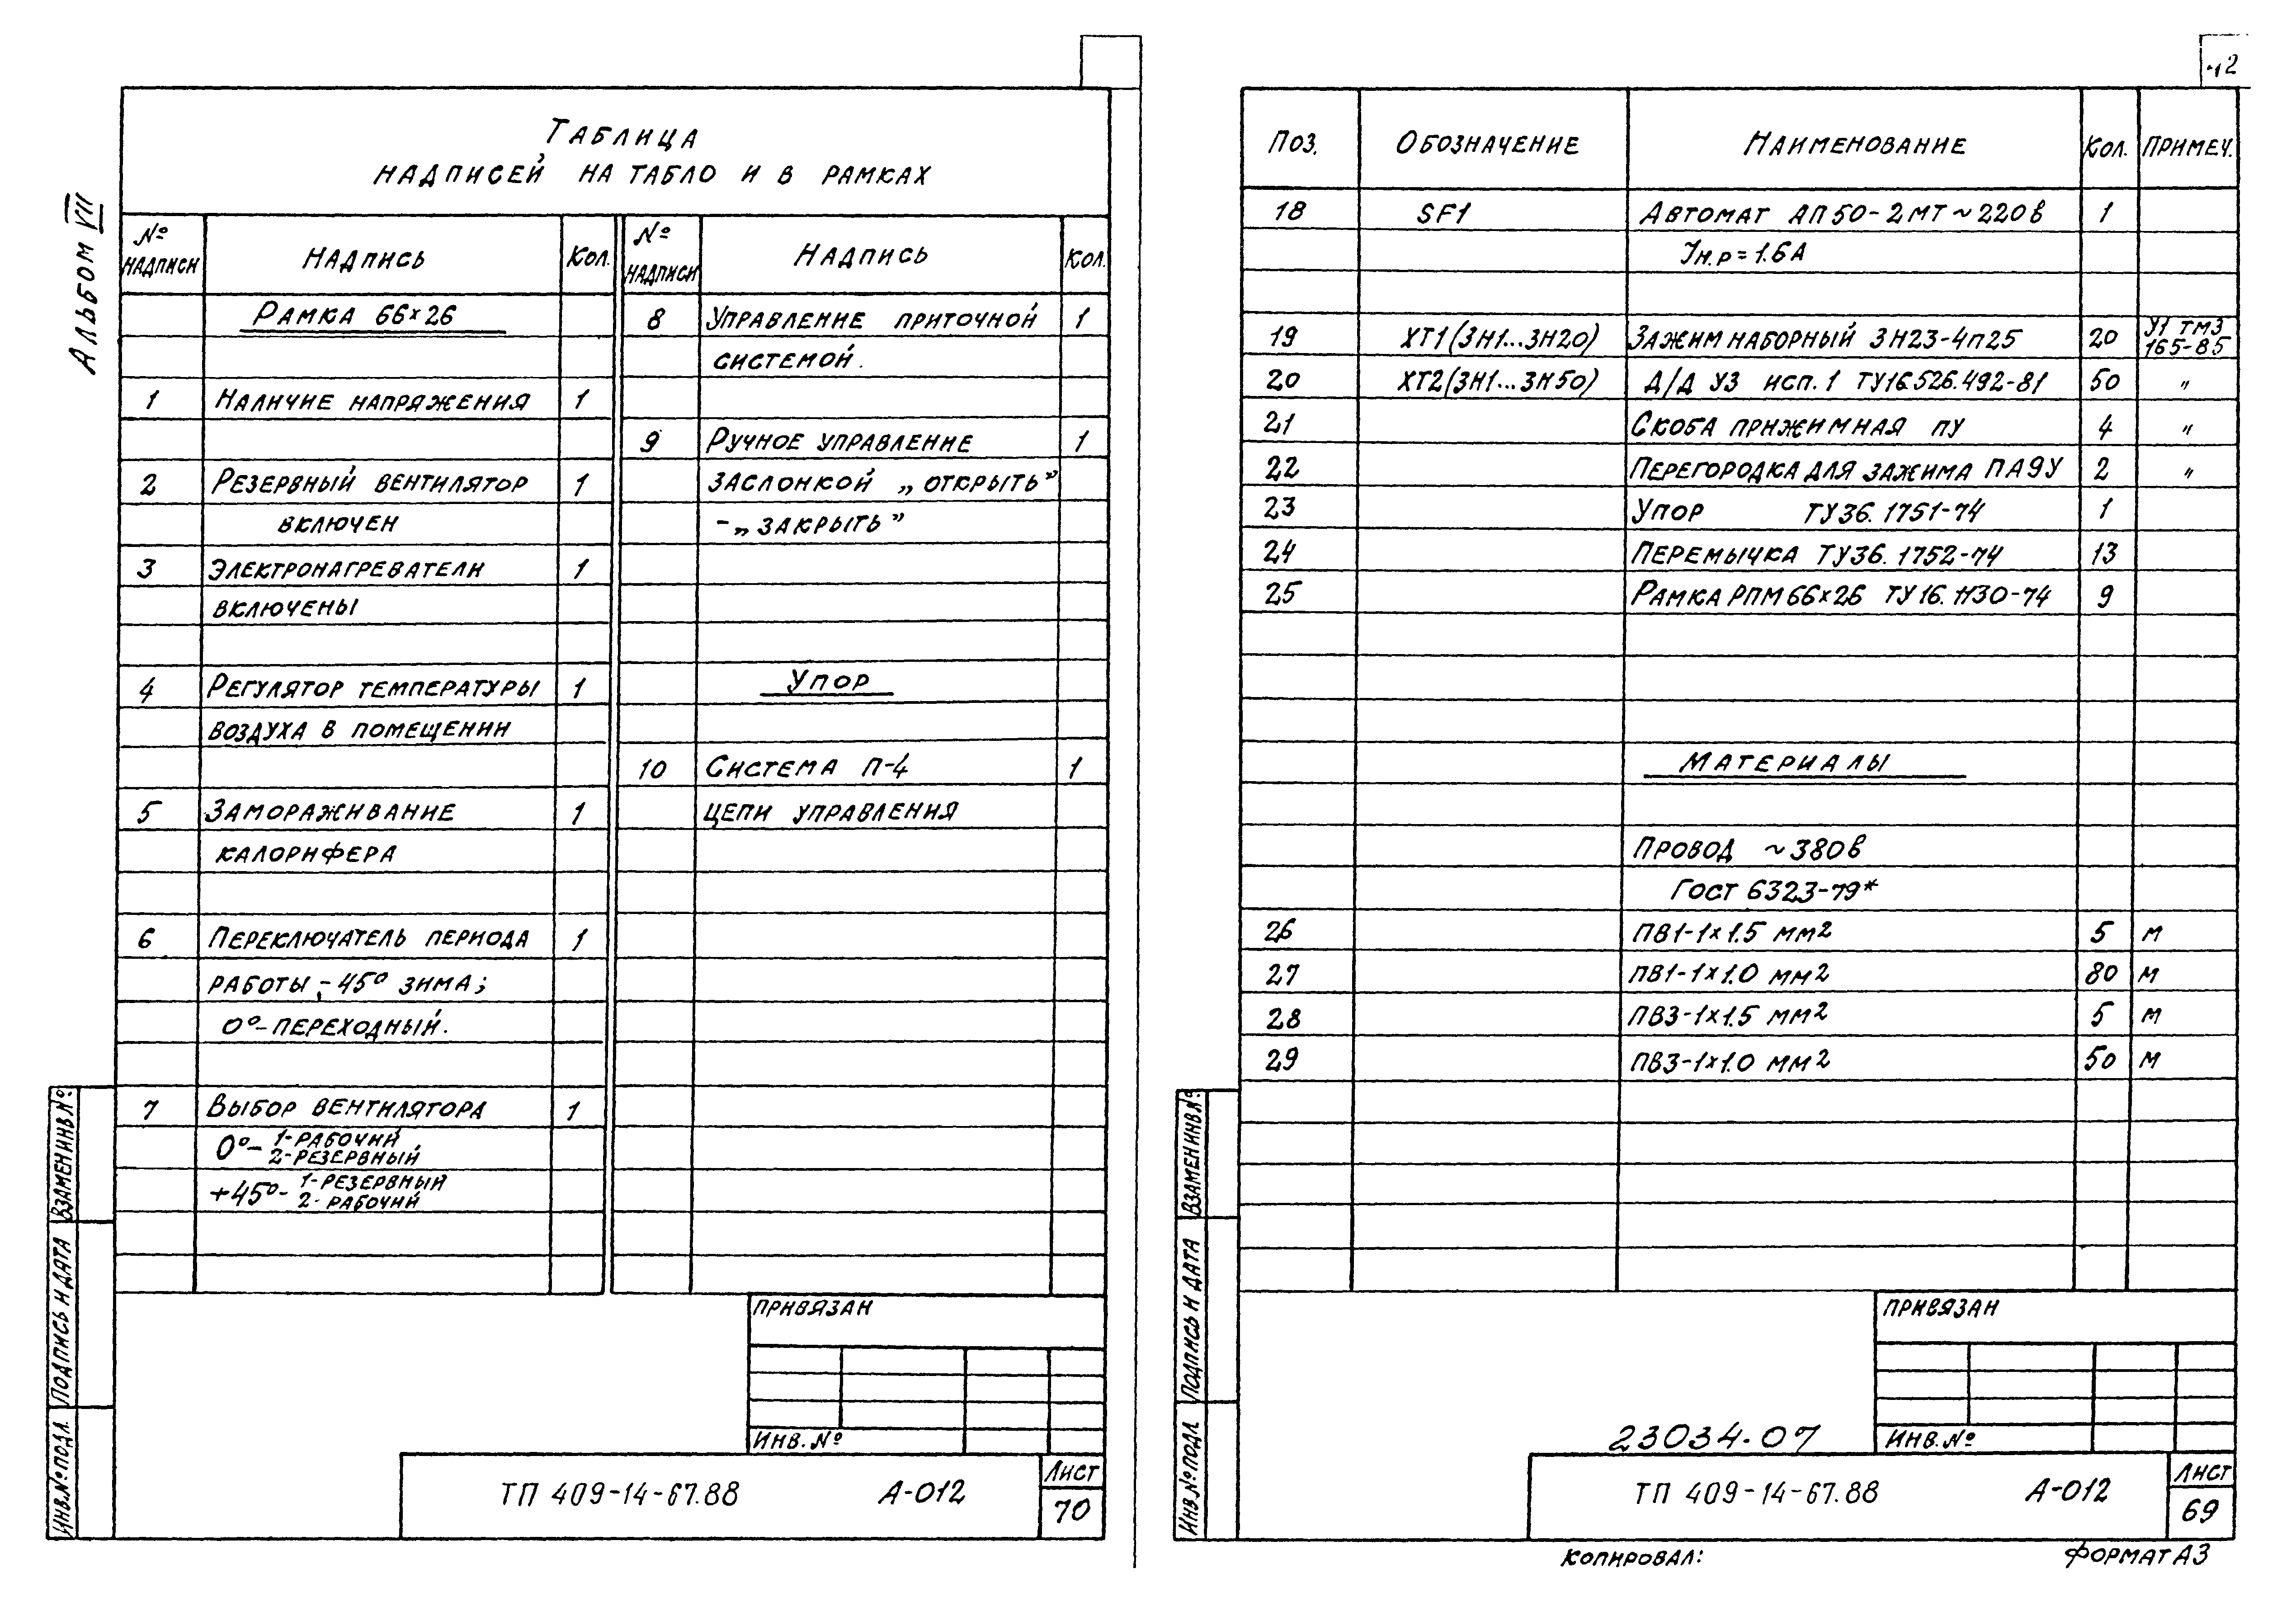 Альбом VII
Таблица
надписей на табло и в рамках
№ надписи Надпись Кол. № надписи Надпись Кол.
Рамка 66×26
1 Наличие напряжения 1
2 Резервный вентилятор 1
включен
3 Электронагреватели 1
включены
4 Регулятор температуры 1
воздуха в помещении
5 Замораживание 1
калорифера
6 Переключатель периода 1
работы -45° зима;
0°-переходный.
7 Выбор вентилятора 1
0°- 1-рабочий
2-резервный
+45°- 1-резервный
2-рабочий
8 Управление приточной 1
системой.
9 Ручное управление 1
заслонкой „открыть”
-„закрыть”
Упор
10 Система П-4 1
цепи управления
Привязан
Инв. №
ТП 409-14-67.88 А-012
Лист
70
Взамен инв. №
Подпись и дата
Инв. № подл.
42
Поз. Обозначение Наименование Кол. Примеч.
18 SF1 Автомат АП50-2МТ ~220в 1
Jн.р=1.6А
19 ХТ1(ЗН1...ЗН20) Зажим наборный ЗН23-4П25 20 У1 ТМ3
165-85
20 ХТ2(ЗН1...ЗН50) Д/Д У3 исп.1 ТУ16.526.492-81 50 „
21 Скоба прижимная ПУ 4 „
22 Перегородка для зажима ПА9У 2 „
23 Упор ТУ36.1751-74 1
24 Перемычка ТУ36.1752-74 13
25 Рамка РПМ 66×26 ТУ16.1130-74 9
Материалы
Провод ~380в
Гост 6323-79*
26 ПВ1-1×1.5 мм2 5 м
27 ПВ1-1×1.0 мм2 80 м
28 ПВ3-1×1.5 мм2 5 м
29 ПВ3-1×1.0 мм2 50 м
Привязан
Инв. №
23034-07
ТП 409-14-67.88 А-012
Лист
69
Взамен инв. №
Подпись и дата
Инв. № подл.
Копировал:
Формат А3